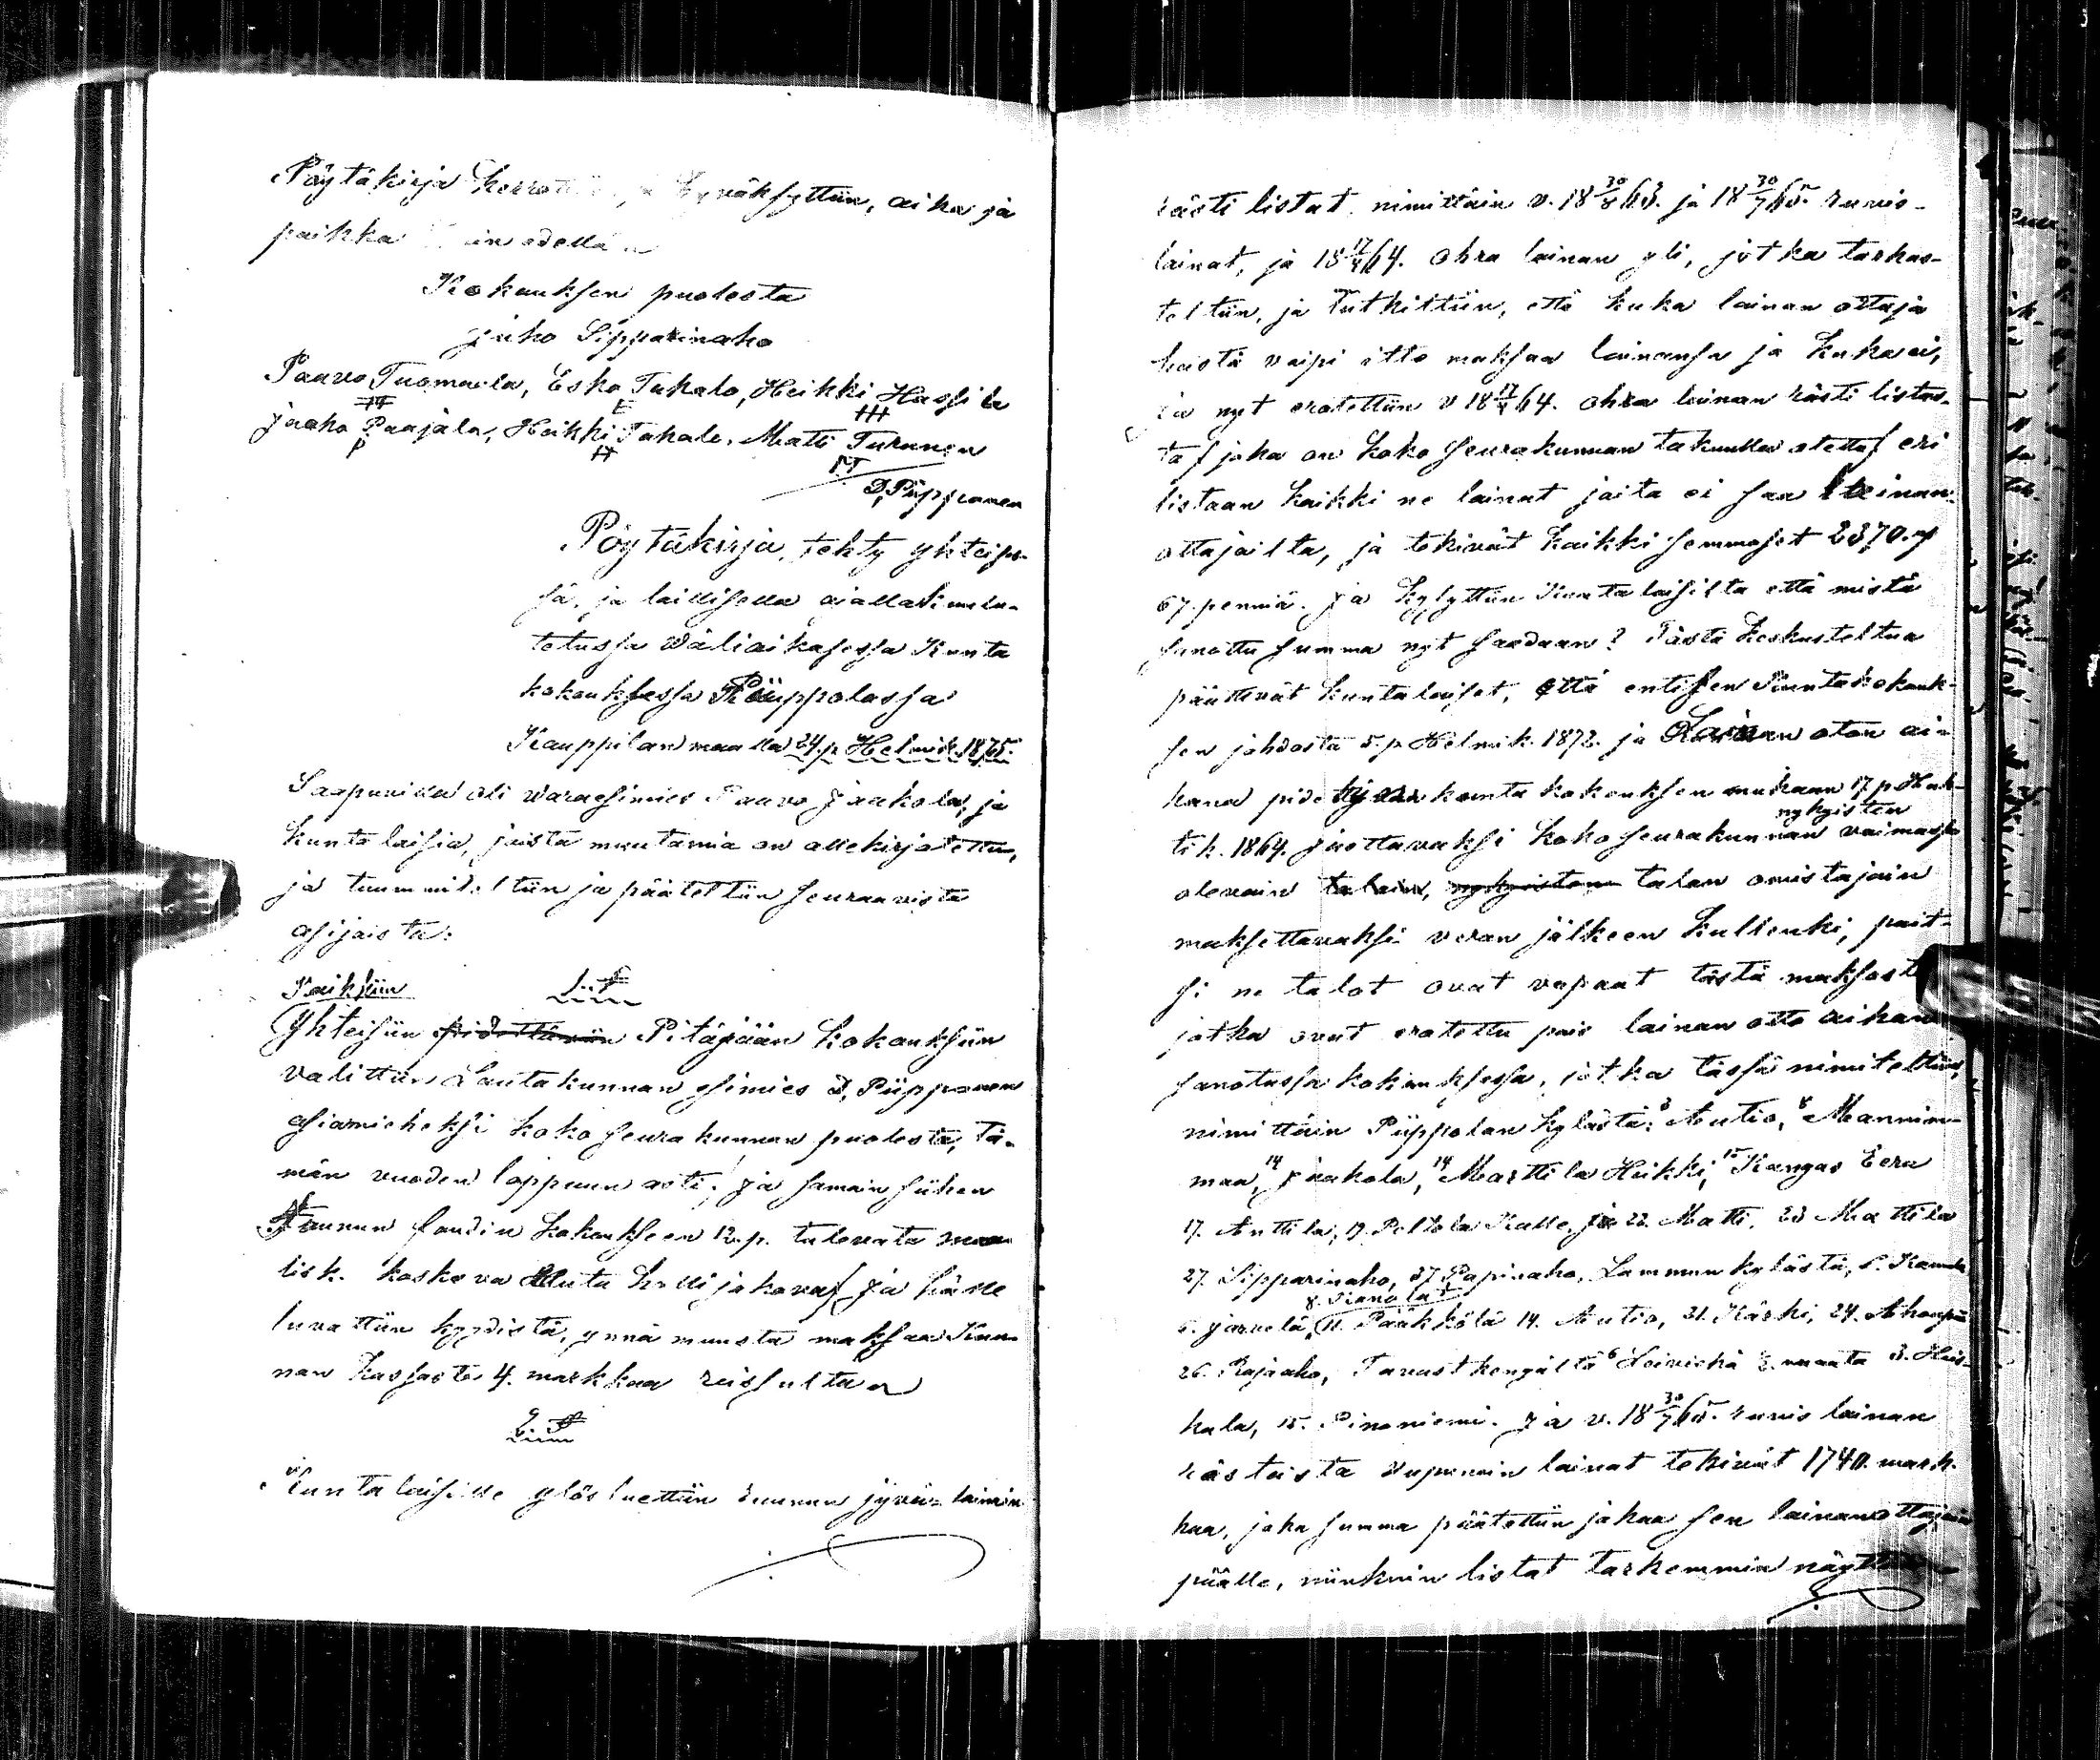 Pöytäkirja hyväksyttiin, aika ja
paikka edellä
Kokouksen puolesta
Juho Sipparinaho
Paavo Tuomaala, Esko Tukala, Heikki Hassila
Jaako Paajala, Heikki Tahale, Matti Turunen
D, Piipponen
Pöytäkirja, tehty yhteises-
sä, ja laillisella ajalla
tetussa Väliaikasessa Kunta
kokouksessa Piippolassa
Kauppilan maalla 24. p Helmik 1875.
Saapuvilla oli varaesimies Paavo Jaakola, ja
kuntalaisia, joista muutamia on allekirjotettu,
ja tuummiteltiin ja päätettiin seuraavista
asijoista:
1:§
Paikkiin
Yhteisiin Pitäjään kokouksiin
valittiin Lautakunnan esimies D, Piipponen
asiamieheksi koko seurakunnan puolesta, tä-
män vuoden loppuun asti; ja samoin siihen
kokoukseen 12. p. tulevata maa
lisk. ja hälle
luvattiin kyydistä, ynnä muusta maksaa Kun-
nan kassasta 4. markkaa reissulta
2 §
Kuntalaisille ylös luettiin kruunun jyvä lainain
rästi listat, nimittäin v. 18 30/8 63. ja 18 30/7 65. ruis-
lainat, ja 18 17/4 64. Ohra lainan yli, jotka tarkas-
teltiin, ja tutkittiin, että kuka lainan ottaja
heistä voipi itte maksaa lainansa ja kuka ei,
ja nyt erotettiin v 18 17/4 64. ohra lainan rästi listas-
ta joka on koko seurakunnan takuulla otettu eri
listaan kaikki ne lainat joita ei saa lainan-
ottajailta, ja tekivät kaikki semmoset 2370.
67. penniä. ja kysyttiin Kuntalaisilta että mistä
sanottu summa nyt saadaan? Tästä keskusteltua
päättivät kuntalaiset, että entisen Kuntakokouk-
sen johdosta 5. p Helmik. 1872. ja Lainan oton ai-
kana kunta kokouksen mukaan 17. p Huh-
nykyisten
tik. 1864. jaettavaksi koko seurakunnan voimassa
olevain talain, nykyisten talon omistajain
maksettavaksi veron jälkeen kullenki, pait-
si ne talot ovat vapaat tästä maksosta
jotka ovat erotettu pois lainan otto aikana
sanotussa kokouksessa, jotka tässä nimitettiin,
nimittäin Piippolan kylästä: 3 Autio, 8 Mannin-
maa, 14 Jaakola, 14 Marttila Heikki, 15 Kangas Eera
17. Anttila, 19. Peltola Kalle, ja 22. Matti, 23 Mattila
27. Sipparinaho, 37. Papinaho, Lamman kylästä, 5.
8. Kanala
6. Järvelä, 11. Pääkkölä 14. Autio, 21. Kärki, 24.
26. Rajaaho, Tavastkengältä 6 Leiviskä 3. Heis-
kala, 15. Pinoniemi. ja v. 18 30/7 65. ruis lainan
rästoista vapavain lainat tekivät 1740. mark-
kaa, joka summa päätettiin jakaa sen lainanottajain
päälle, niinkuin listat tarkemmin näyttävät